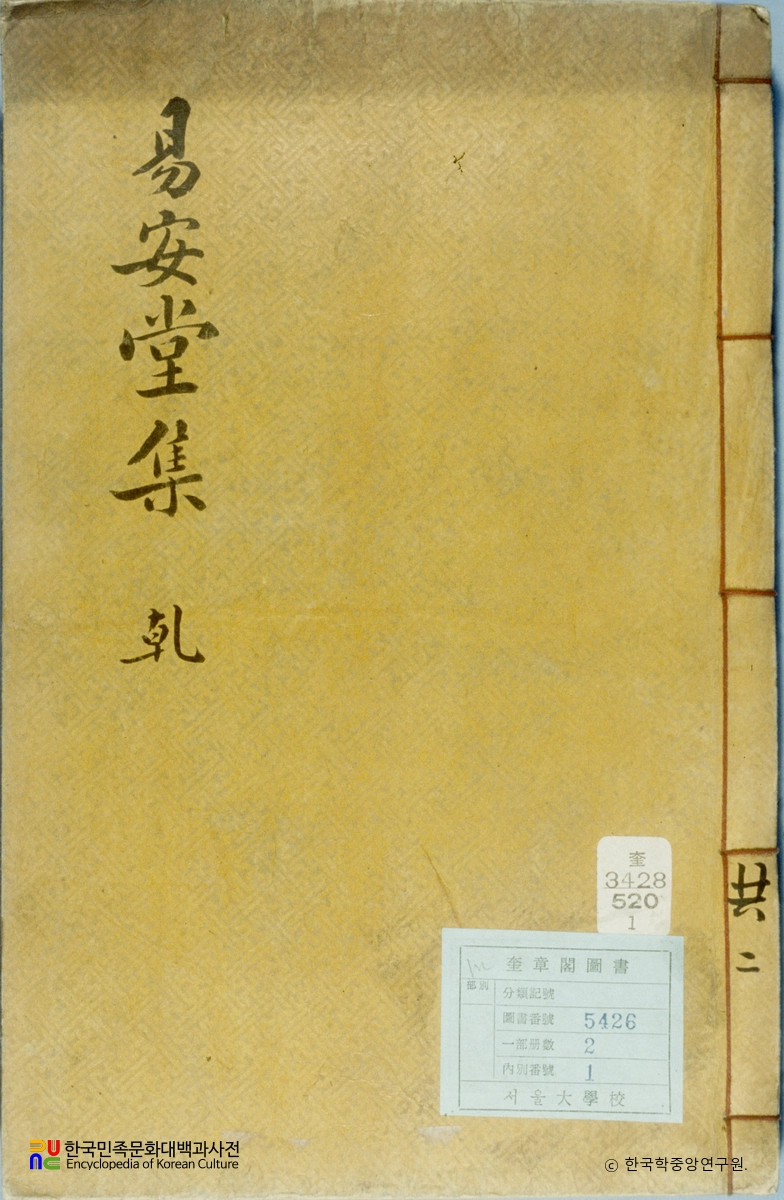 易安堂集 乾
共二
奎
3428
520
1
奎章閣圖書
部別
分類記號
圖書番號 5426
一部册數 2
內別番號 1
서울大學校
한국민족문화대백과사전
Encyclopedia of Korean Culture
ⓒ 한국학중앙연구원.